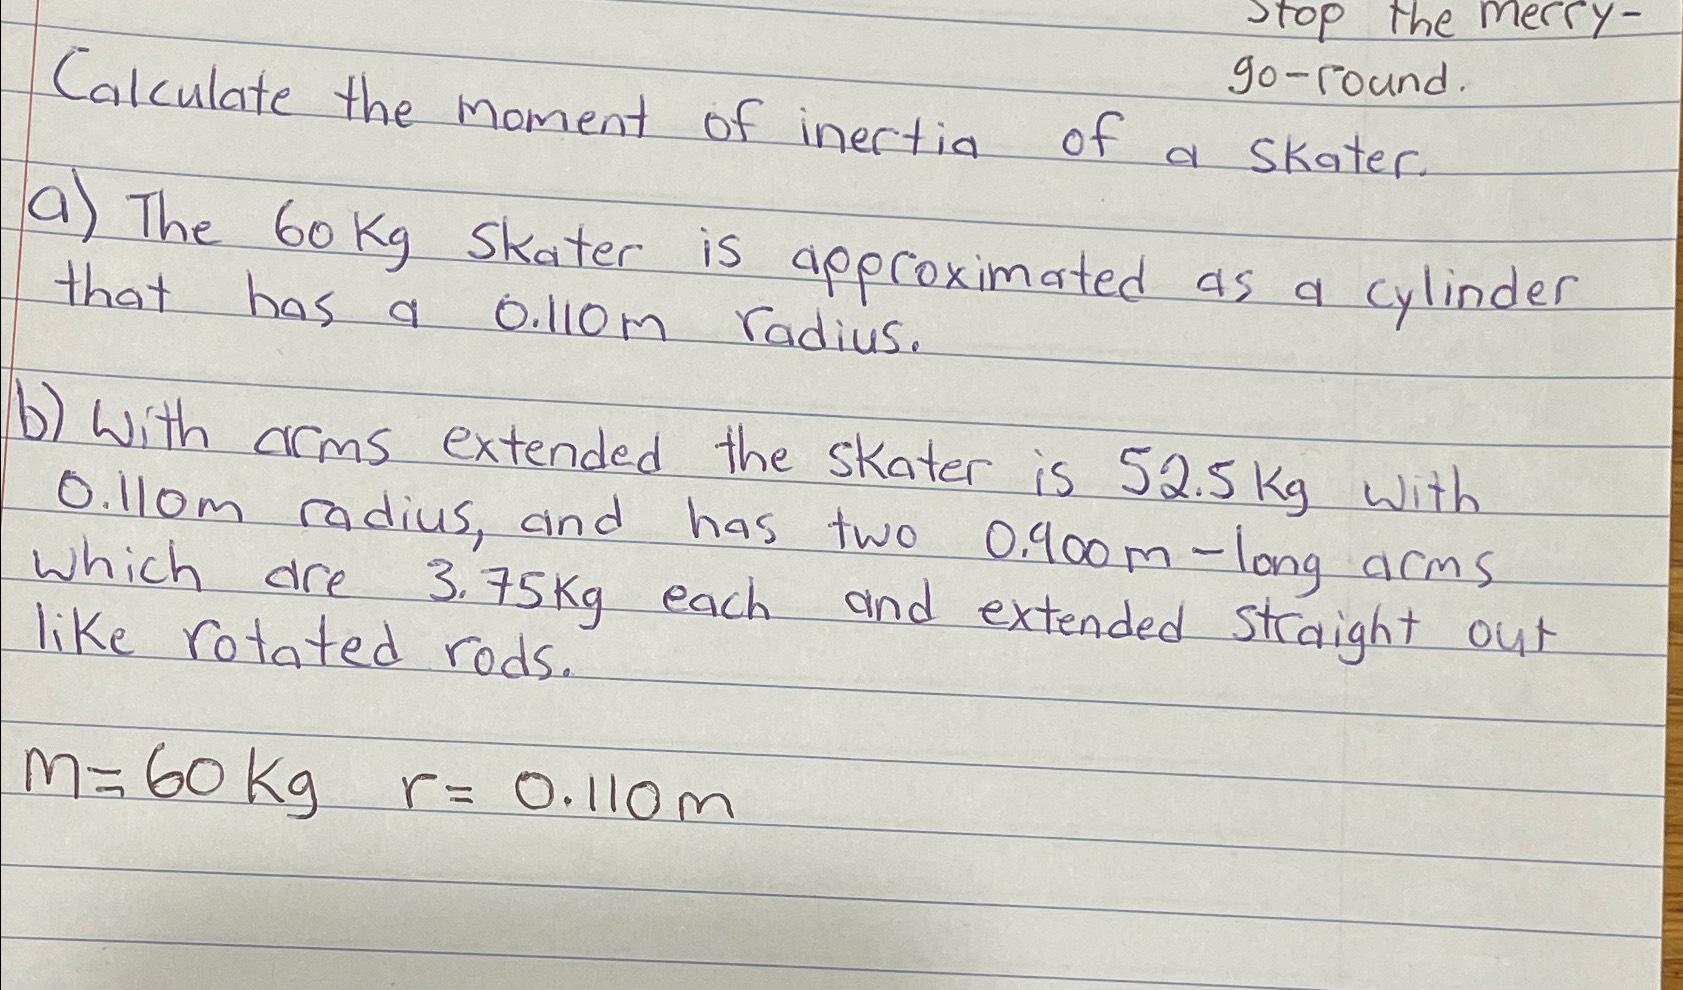 Stop the merry-
go-round.
Calculate the moment of inertia of a skater.
a) The 60 Kg skater is approximated as a cylinder
that has a 0.110m radius.
b) With arms extended the skater is 52.5 Kg with
0.110m radius, and has two 0.900m-long arms
which are 3.75Kg each and extended straight out
like rotated rods.
m=60 Kg r= 0.110m